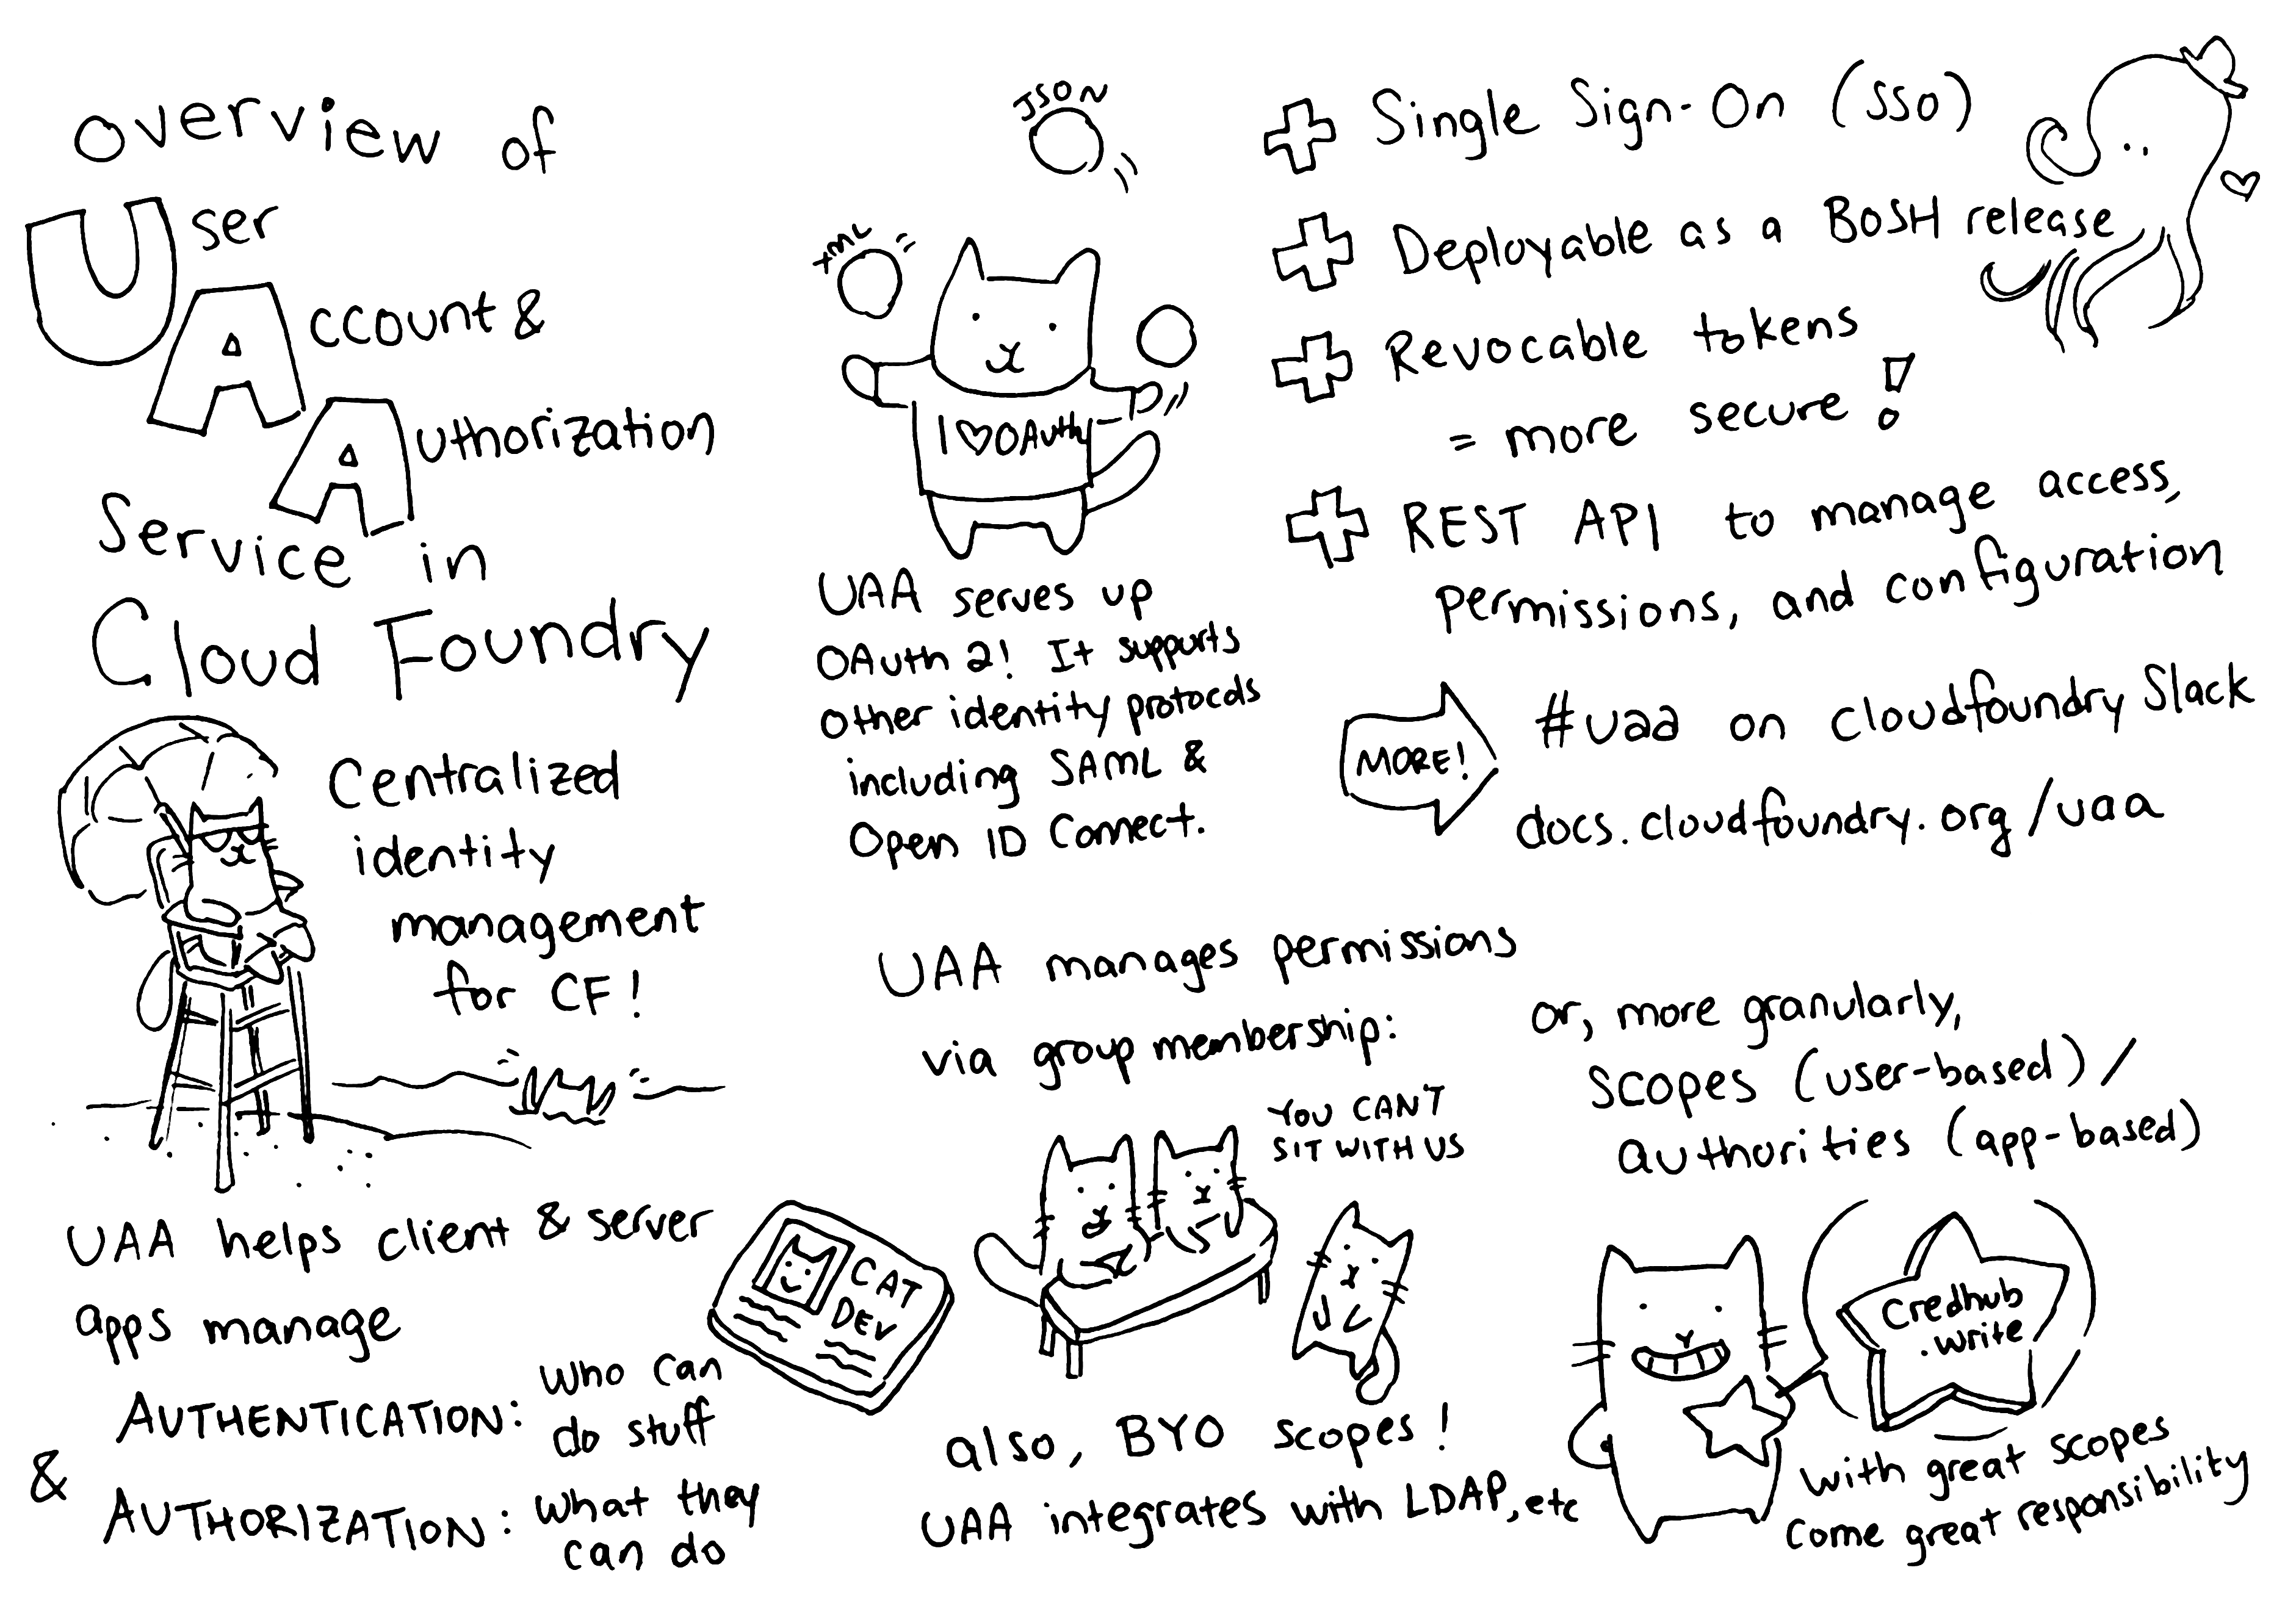 overview of
User
Account &
Authorization
Service in
Cloud Foundry
Centralized
identity
management
for CF!
UAA helps client & server
apps manage
AUTHENTICATION: who can
do stuff
& AUTHORIZATION: what they
can do
CAT
DEV
JSON
XML
I ♡ OAuth
UAA serves up
OAuth 2! It supports
other identity protocols
including SAML &
Open ID Connect.
Single Sign-On (SSO)
Deployable as a BOSH release
Revocable tokens
= more secure!
REST API to manage access,
permissions, and configuration
MORE!
#uaa on cloudfoundry Slack
docs.cloudfoundry.org/uaa
UAA manages permissions
via group membership:
YOU CAN'T
SIT WITH US
also, BYO scopes!
UAA integrates with LDAP, etc
or, more granularly,
scopes (user-based)/
authorities (app-based)
Credhub
.write
with great scopes
come great responsibility